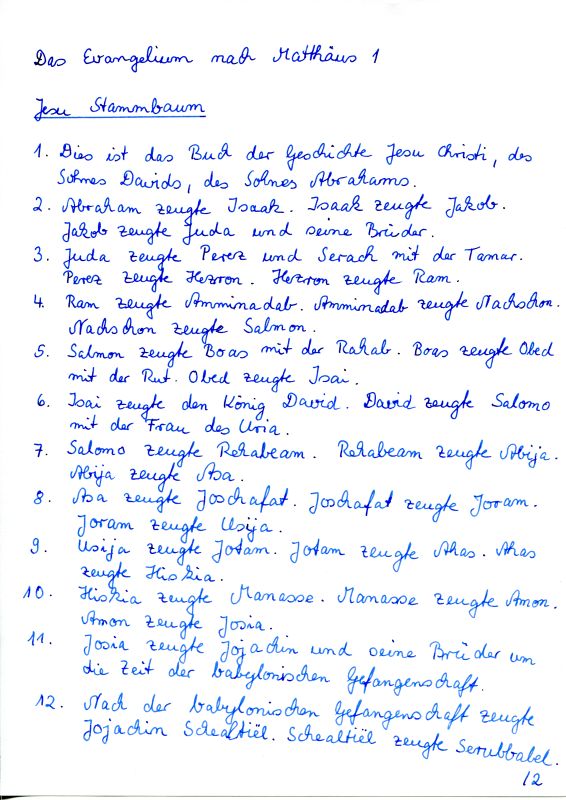 Das Evangelium nach Matthäus 1
Jesu Stammbaum
1. Dies ist das Buch der Geschichte Jesu Christi, des
Sohnes Davids, des Sohnes Abrahams.
2. Abraham zeugte Isaak. Isaak zeugte Jakob.
Jakob zeugte Juda und seine Brüder.
3. Juda zeugte Perez und Serach mit der Tamar.
Perez zeugte Hezron. Hezron zeugte Ram.
4. Ram zeugte Amminadab. Amminadab zeugte Nachschon.
Nachschon zeugte Salmon.
5. Salmon zeugte Boas mit der Rahab. Boas zeugte Obed
mit der Rut. Obed zeugte Isai.
6. Isai zeugte den König David. David zeugte Salomo
mit der Frau des Uria.
7. Salomo zeugte Rehabeam. Rehabeam zeugte Abija.
Abija zeugte Asa.
8. Asa zeugte Joschafat. Joschafat zeugte Joram.
Joram zeugte Usija.
9. Usija zeugte Jotam. Jotam zeugte Ahas. Ahas
zeugte Hiskia.
10. Hiskia zeugte Manasse. Manasse zeugte Amon.
Amon zeugte Josia.
11. Josia zeugte Jojachin und seine Brüder um
die Zeit der babylonischen Gefangenschaft.
12. Nach der babylonischen Gefangenschaft zeugte
Jojachin Schealtiël. Schealtiël zeugte Serubbabel.
/2